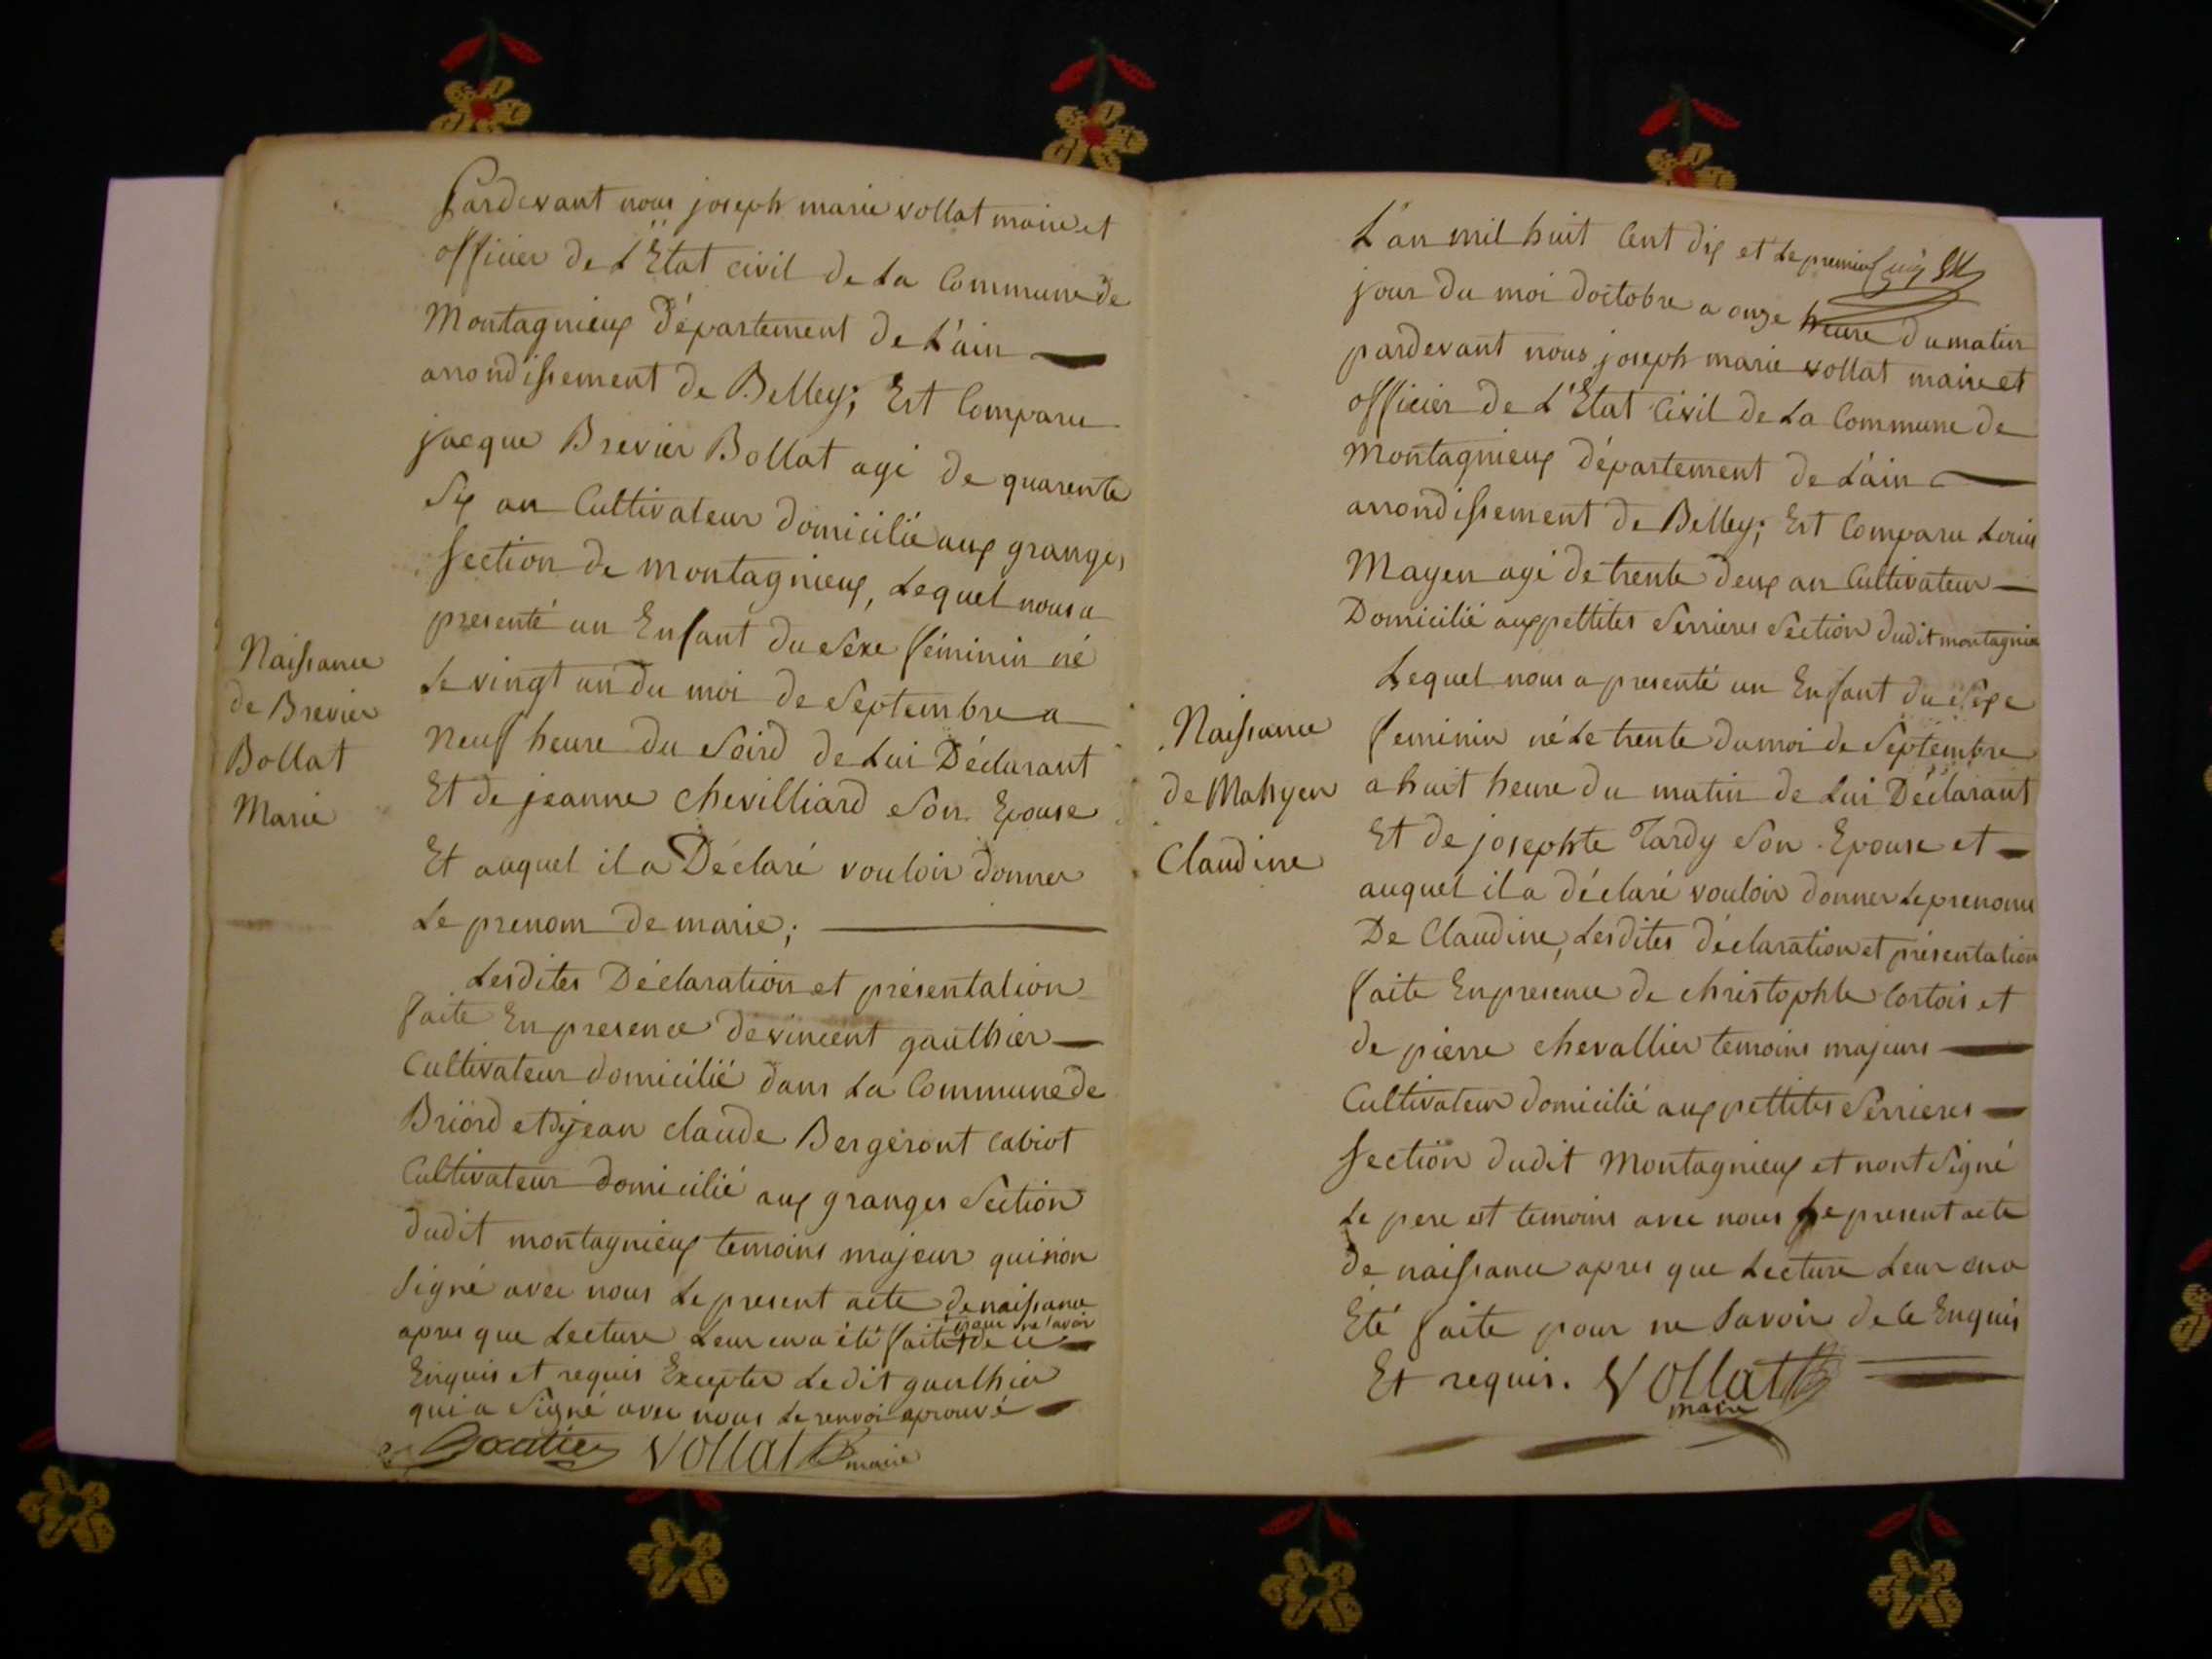 Pardevant nous joseph marie vollat maire et
officier de L'Etat civil de La Commune de
Montagnieux Département de L'ain
arrondissement de Belley; Est Comparu
jacque Brevier Bollat agé de quarente
Six an Cultivateur domicilié aux granges
Section de montagnieux, Lequel nous a
presenté un Enfant du Sexe féminin né
Le vingt un du moi de Septembre a
neuf heure du Soird de Lui Déclarant
Et de jeanne chevilliard Son Epouse
Et auquel il a Déclaré vouloir donner
Le prenom de marie;
Lesdites Déclaration et présentation
faite En presence de vincent gaulthier
Cultivateur domicilié dans La Commune de
Briord et de jean claude Bergeront Cabiot
Cultivateur domicilié aux granges Section
dudit montagnieux temoins majeur qui non
Signé avec nous Le present acte de naissance
pour ne Savoir
apres que Lecture Leur en a été faite + de ce
Enquis et requis Excepter Ledit gaulthier
qui a Signé avec nous Le renvoi aprouvé
Gautier Vollat maire
Naissance
de Brevier
Bollat
Marie
L'an mil huit Cent dix et Le premier
jour du moi doctobre a onze heure du matin
pardevant nous joseph marie vollat maire et
officier de L'Etat Civil de La Commune de
Montagnieux département de L'ain
arrondissement de Belley; Est Comparu Louis
Mayen agé de trente deux an Cultivateur
Domicilié aux pettites Serrieres Section dudit montagnieu
Lequel nous a presenté un Enfant du Sexe
feminin né Le trente du moi de Septembre
a huit heure du matin de Lui Déclarant
Et de josephte Tardy Son Epouse et
auquel il a déclaré vouloir donner Le prenom
De Claudine, Lesdites déclaration et présentation
faite En presence de christophle Cortois et
de pierre chevallier temoins majeurs
Cultivateur domicilié aux pettites Serrieres
Section dudit Montagnieux et nont Signé
Le pere et temoins avec nous Le present acte
de naissance apres que Lecture Leur en a
Eté faite pour ne Savoir de Ce Enquis
Et requis. Vollat
maire
Naissance
de Mahyen
Claudine